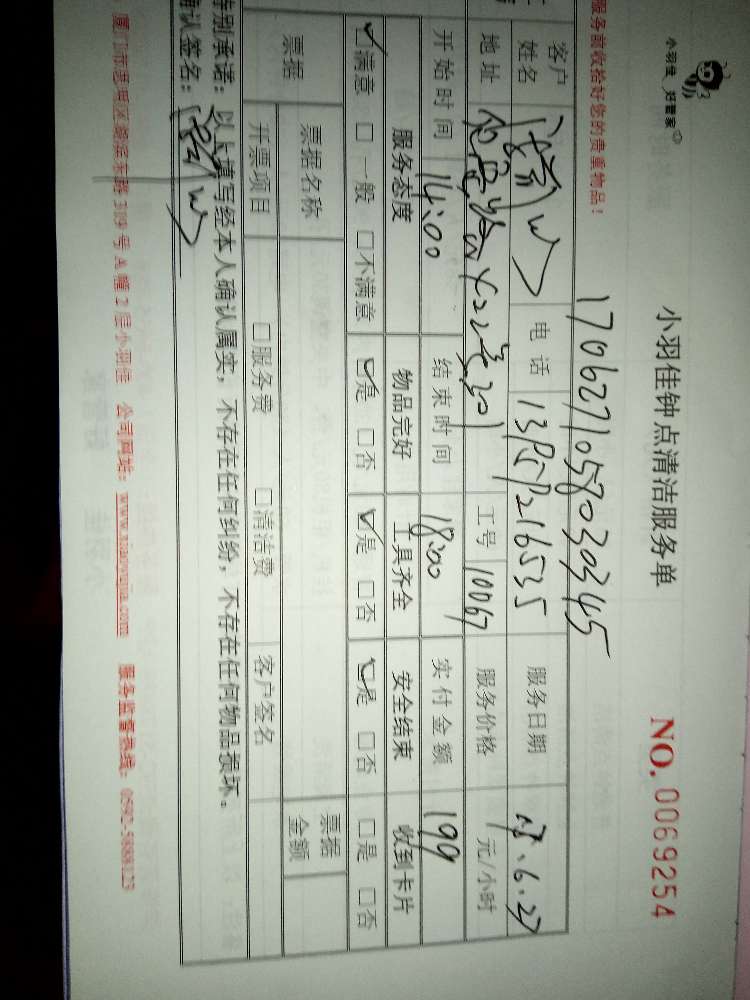 小羽佳 好管家
小羽佳钟点清洁服务单
NO. 0069254
服务前收拾好您的贵重物品！
1706271058030345
客户姓名 电话 服务日期 17.6.27
地址 工号 10067 服务价格 元/小时
开始时间 14:00 结束时间 18:00 实付金额 199
服务态度 物品完好 工具齐全 安全结束 收到卡片
☑满意 □一般 □不满意 ☑是 □否 ☑是 □否 ☑是 □否 □是 □否
票据 票据名称 票据金额
开票项目 □服务费 □清洁费 客户签名
特别承诺：以上填写经本人确认属实，不存在任何纠纷，不存在任何物品损坏。
确认签名：
厦门市思明区 319号A幢2层小羽佳 公司网站：www.xiaoyujia.com 服务监督热线：